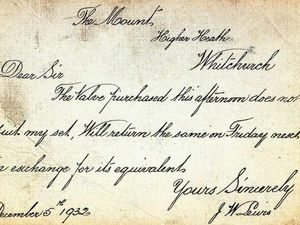 The Mount,
Higher Heath
Whitchurch
Dear Sir
The Valve purchased this afternoon does not
suit my set, Will return the same on Friday next
in exchange for its equivalent.
Yours Sincerely
December 5th 1932
J W Lewis